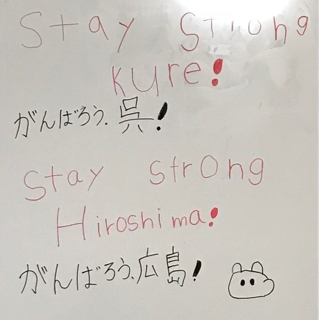 Stay Strong
Kure!
がんばろう、呉!
Stay strong
Hiroshima!
がんばろう、広島!